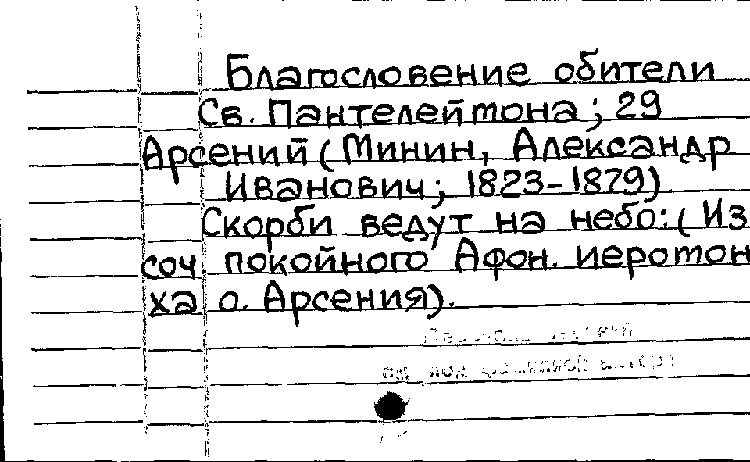 Благословение обители
Св. Пантелеймона; 29
Арсений (Минин, Александр
Иванович; 1823-1879)
Скорби ведут на небо: (Из
соч. покойного Афон. иеромон
ха о. Арсения).